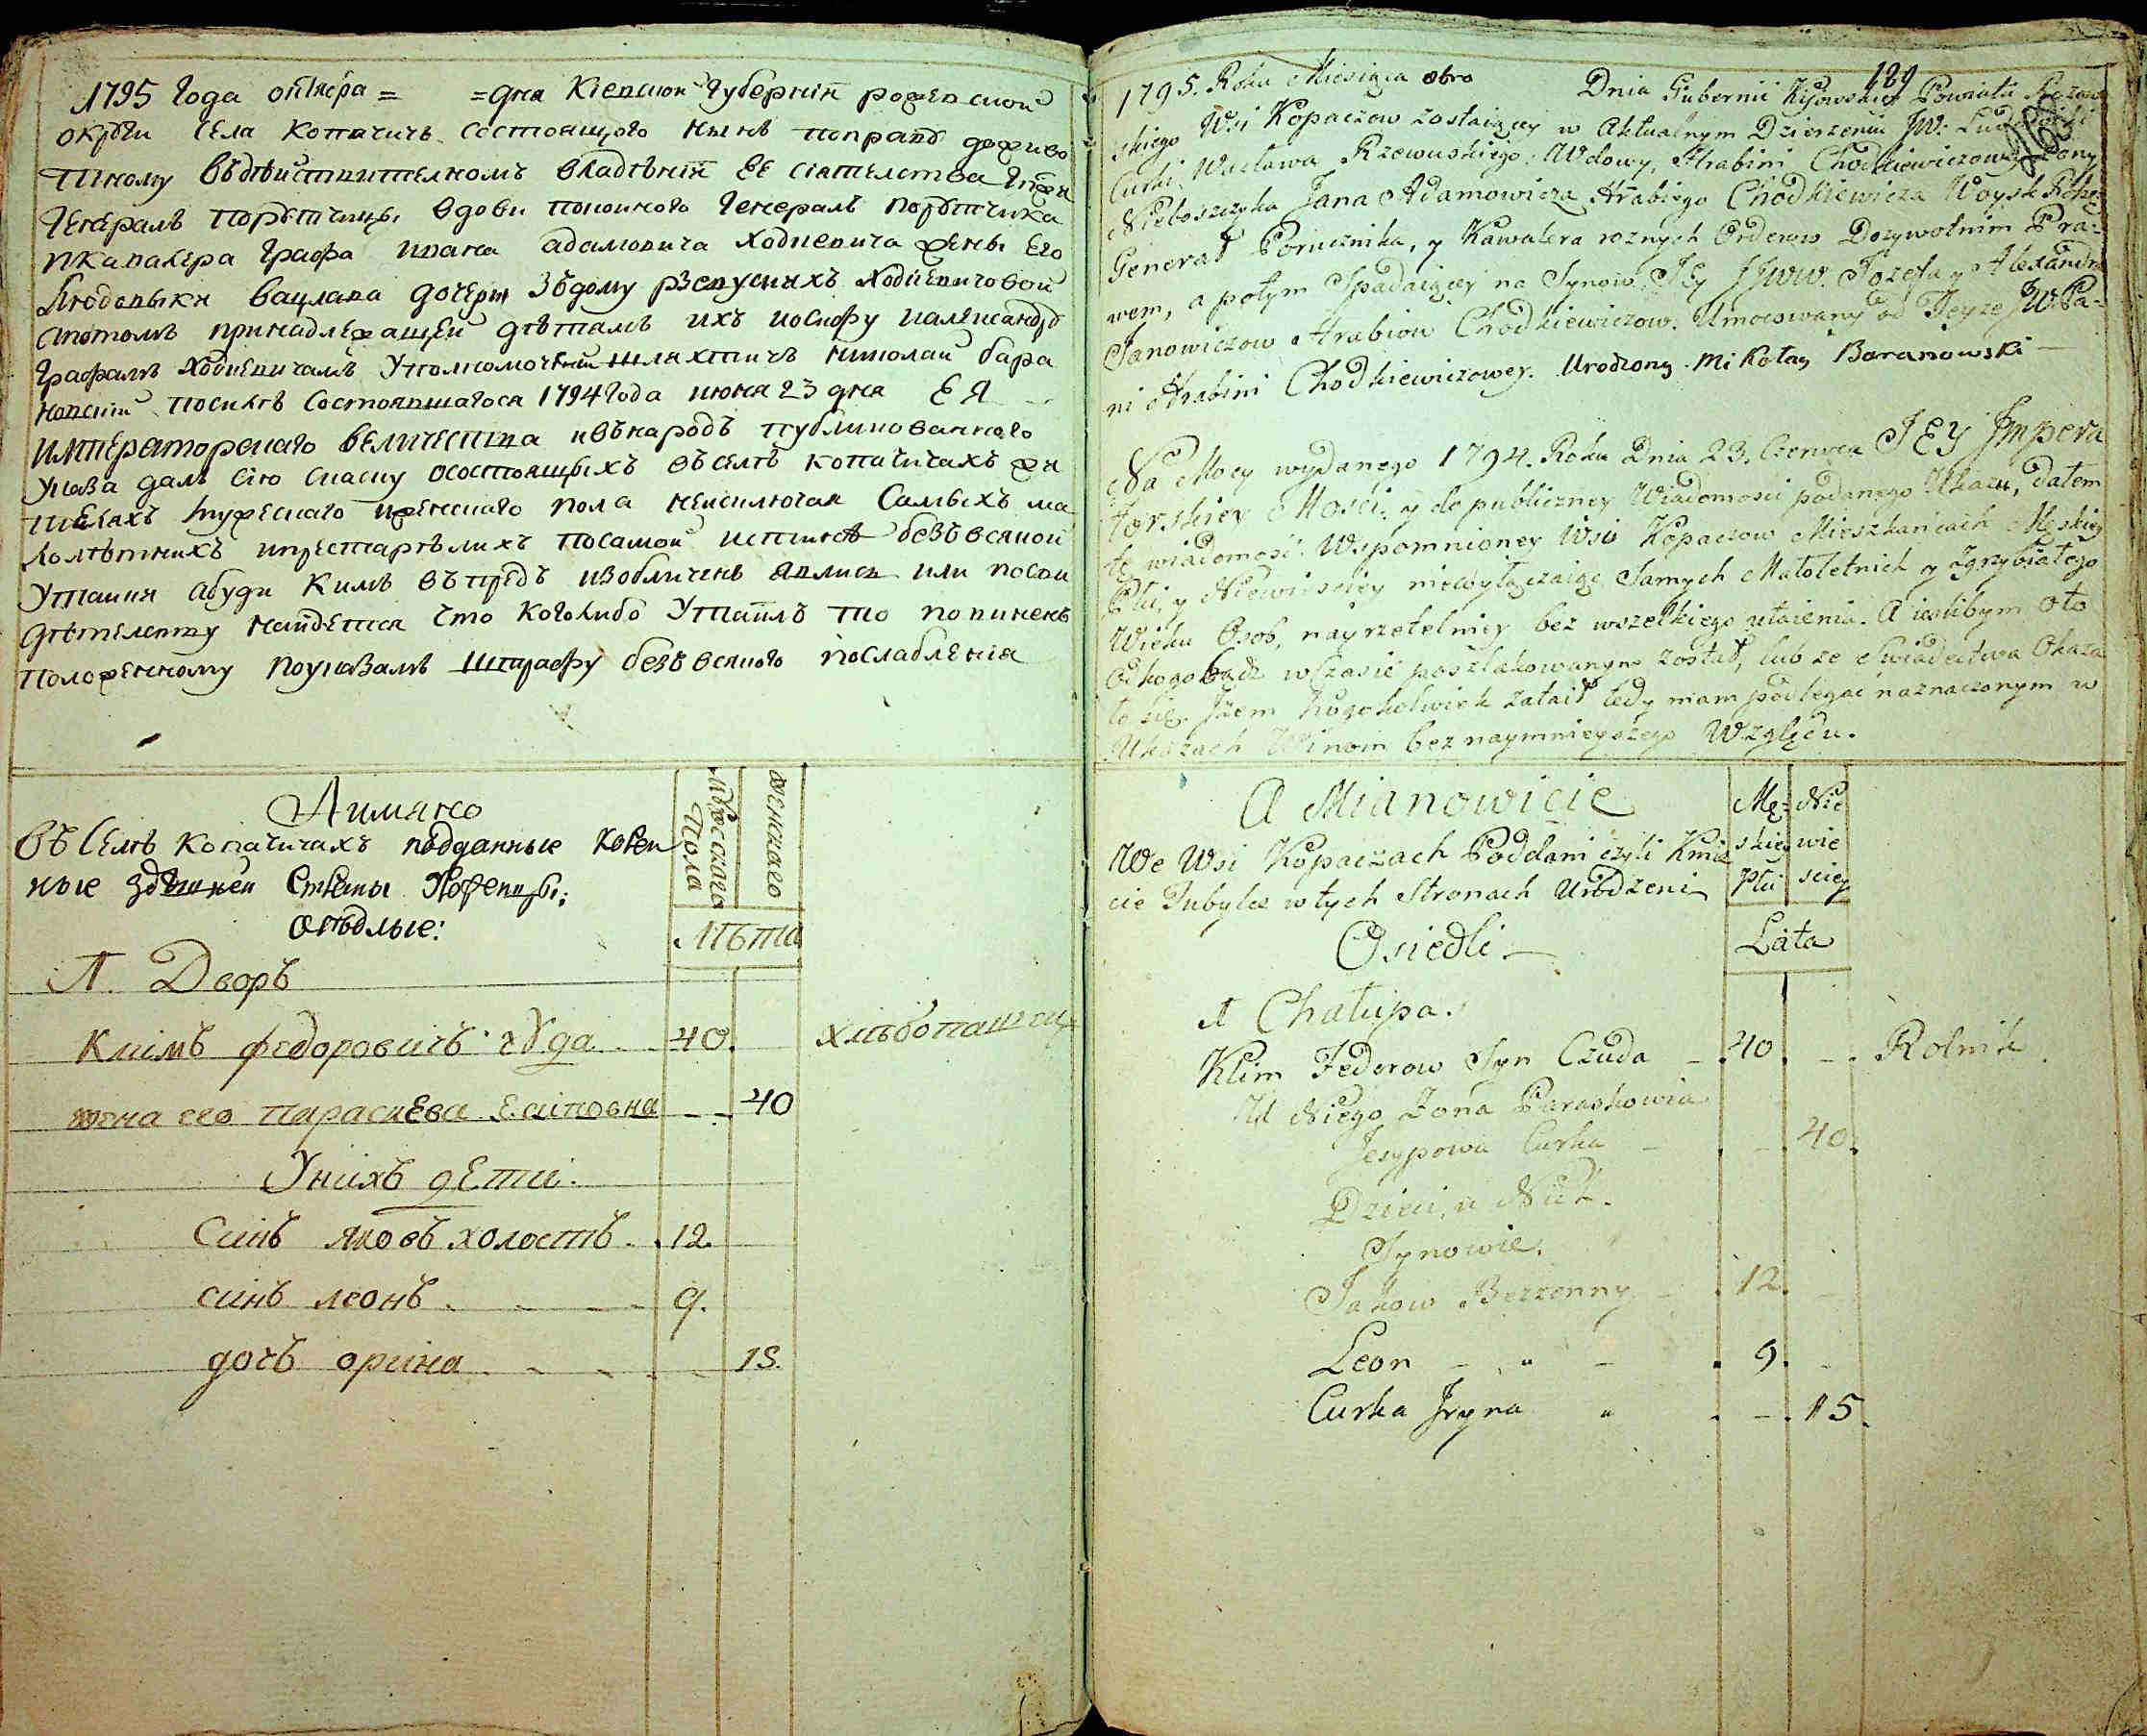 1795 года октября = = дня Киевской Губернии рожевской
округи села копачичъ состоящого нынѣ поправу доживо
тному въдѣйствителномъ владѣніи ее сіятелства
Генералъ порутчицы вдови покоиного Генералъ порутчика
икавалера Графа ивана адамовича ходкевича жены Его
Людовыки вацлава дочери зъдому рзевускихъ ходкевичовой
апотомъ принадлежащей дѣтямъ ихъ иосифу иалександру
Графамъ ходкевичамъ Уполномоченный шляхтичъ николай бара
новский посилѣ состоявшагося 1794 года июня 23 дня ЕЯ
императорскаго величества ивънародъ публикованного
Указа далъ сію скаску осостоящыхъ въселѣ копачичахъ жи
теляхъ мужескаго иженскаго пола неисключая самыхъ ма
лолѣтнихъ ипрестарѣлихъ посамой истиннѣ безъ всякой
Утаики абуди кимъ въпредъ изобличенъ явлюсь или посви
дѣтелству найдется что коголибо Утаилъ то повиненъ
положенному поуказамъ штрафу безъ всякого послабленія
Аимянно
въ селѣ копачичахъ подданные корен
ные здѣшней страны
осѣдлые:
Мужескаго Пола
женскаго
Лѣта
А. Дворъ
Климъ федоровичъ чуда 40. хлѣбопашецъ
жена его параскева Есиповна - - 40
Унихъ дети.
Синъ яковъ холостъ. 12.
синъ леонъ. 9.
дочъ орина 15.
189
1795. Roku Miesiąca 8bra Dnia Gubernii Kijowskiey Powiatu
skiego Wsi Kopaczow zostaiącey w Aktualnym Dzierzeniu JW. Ludowiki
Curki Wacława Rzewuskiego, Wdowy, Hrabini Chodkiewiczowey Żony
Nieboszczyka Jana Adamowicza Hrabiego Chodkiewicza Woysk
Generał Porucznika, y Kawalera roznych Orderow Dożywotnim Pra-
wem, a potym Spadaiącey na Synow JEy JJWW. Jozefa y Alexandra
Janowiczow Hrabiow Chodkiewiczow. Umocowany od Teyże JW. Pa-
ni Hrabini Chodkiewiczowey. Urodzony Mikołay Baranowski
Na Mocy wydanego 1794. Roku Dnia 23. Czerwca JEY Jmpera
torskiey Mości, y do publiczney Wiadomości podanego Ukazu, dałem
tę wiadomość. Wspomnioney Wsi Kopaczow Mieszkańcach Męskiey
Płci, y Niewiesciey niewyłączaiąc Samych Małoletnich y Zgrzybiałego
Wieku Osob, nayrzetelniey bez wszelkiego utaienia. A iesliby m oto
od kogo bądz w czasie poszlakowanym został, lub ze Swiadectwa Okaza
ło się. Jżem kogokolwiek zataił tedy mam podlegać naznaczonym w
Ukazach Winom bez naymnieyszego Względu.
A Mianowicie
We Wsi Kopaczach Poddani czyli Kmie
cie Tubylce w tych Stronach Urodzeni
Osiedli
Mę- skiey Płci
Nie wie sciey
Lata
A Chałupa.
Klim Fedorow Syn Czuda - 40. - . Rolnik.
U Niego Żona Paraskowia
Jesypowa Curka - . - . 40.
Dzieci, u Nich.
Synowie.
Jakow Bezzenny - . 12. -
Leon - " - . 9. -
Curka Jryna " . - . 15.